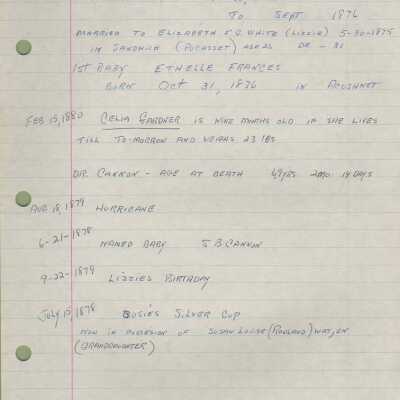 TO SEPT 1876
MARRIED TO ELIZABETH F.G. WHITE (LIZZIE) 5-30-1875
IN SANDWICH (POCASSET) AGE 23 DR - 31
1ST BABY ETHELLE FRANCES
BORN OCT 31, 1876 IN ACUSHNET
FEB 15, 1880 CELIA GARDNER IS NINE MONTHS OLD IF SHE LIVES
TILL TO-MORROW AND WEIGHS 23 lbs
DR. CANNON - AGE AT DEATH 49 YRS 2 MO. 14 DAYS
AUG 18, 1879 HURRICANE
6-21-1878 NAMED BABY S B CANNON
9-22-1879 LIZZIES BIRTHDAY
JULY 15, 1878 SUSIE'S SILVER CUP
NOW IN POSSESION OF SUSAN LOUISE (ROWLAND) WATSON
(GRANDDAUGHTER)